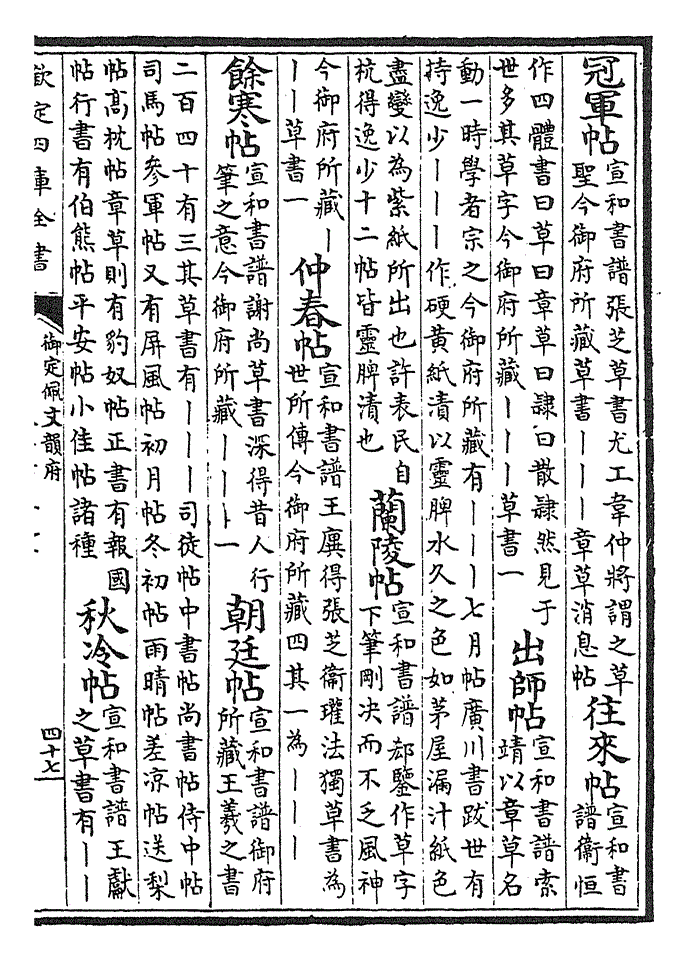 冠軍帖
宣和書譜張芝草書尤工韋仲將謂之草
聖今御府所藏草書｜｜｜章草消息帖
往來帖
宣和書
譜衞恒
作四體書曰草曰章草曰隷曰散隷然見于
世多其草字今御府所藏｜｜｜草書一
出師帖
宣和書譜索
靖以章草名
動一時學者宗之今御府所藏有｜｜｜七月帖廣川書跋世有
持逸少｜｜｜作硬黄紙漬以靈脾水久之色如茅屋漏汁紙色
盡變以為紫紙所出也許表民自
杭得逸少十二帖皆靈脾漬也
蘭陵帖
宣和書譜郄鑒作草字
下筆剛决而不乏風神
今御府所藏｜
｜｜草書一
仲春帖
宣和書譜王廙得張芝衞瓘法獨草書為
世所傳今御府所藏四其一為｜｜｜
餘寒帖
宣和書譜謝尚草書深得昔人行
筆之意今御府所藏｜｜｜一
朝廷帖
宣和書譜御府
所藏王羲之書
二百四十有三其草書有｜｜｜司徒帖中書帖尚書帖侍中帖
司馬帖參軍帖又有屏風帖初月帖冬初帖雨晴帖差凉帖送梨
帖髙枕帖章草則有豹奴帖正書有報國
帖行書有伯熊帖平安帖小佳帖諸種
秋冷帖
宣和書譜王獻
之草書有｜｜
欽定四庫全書
御定佩文韻府
四十七